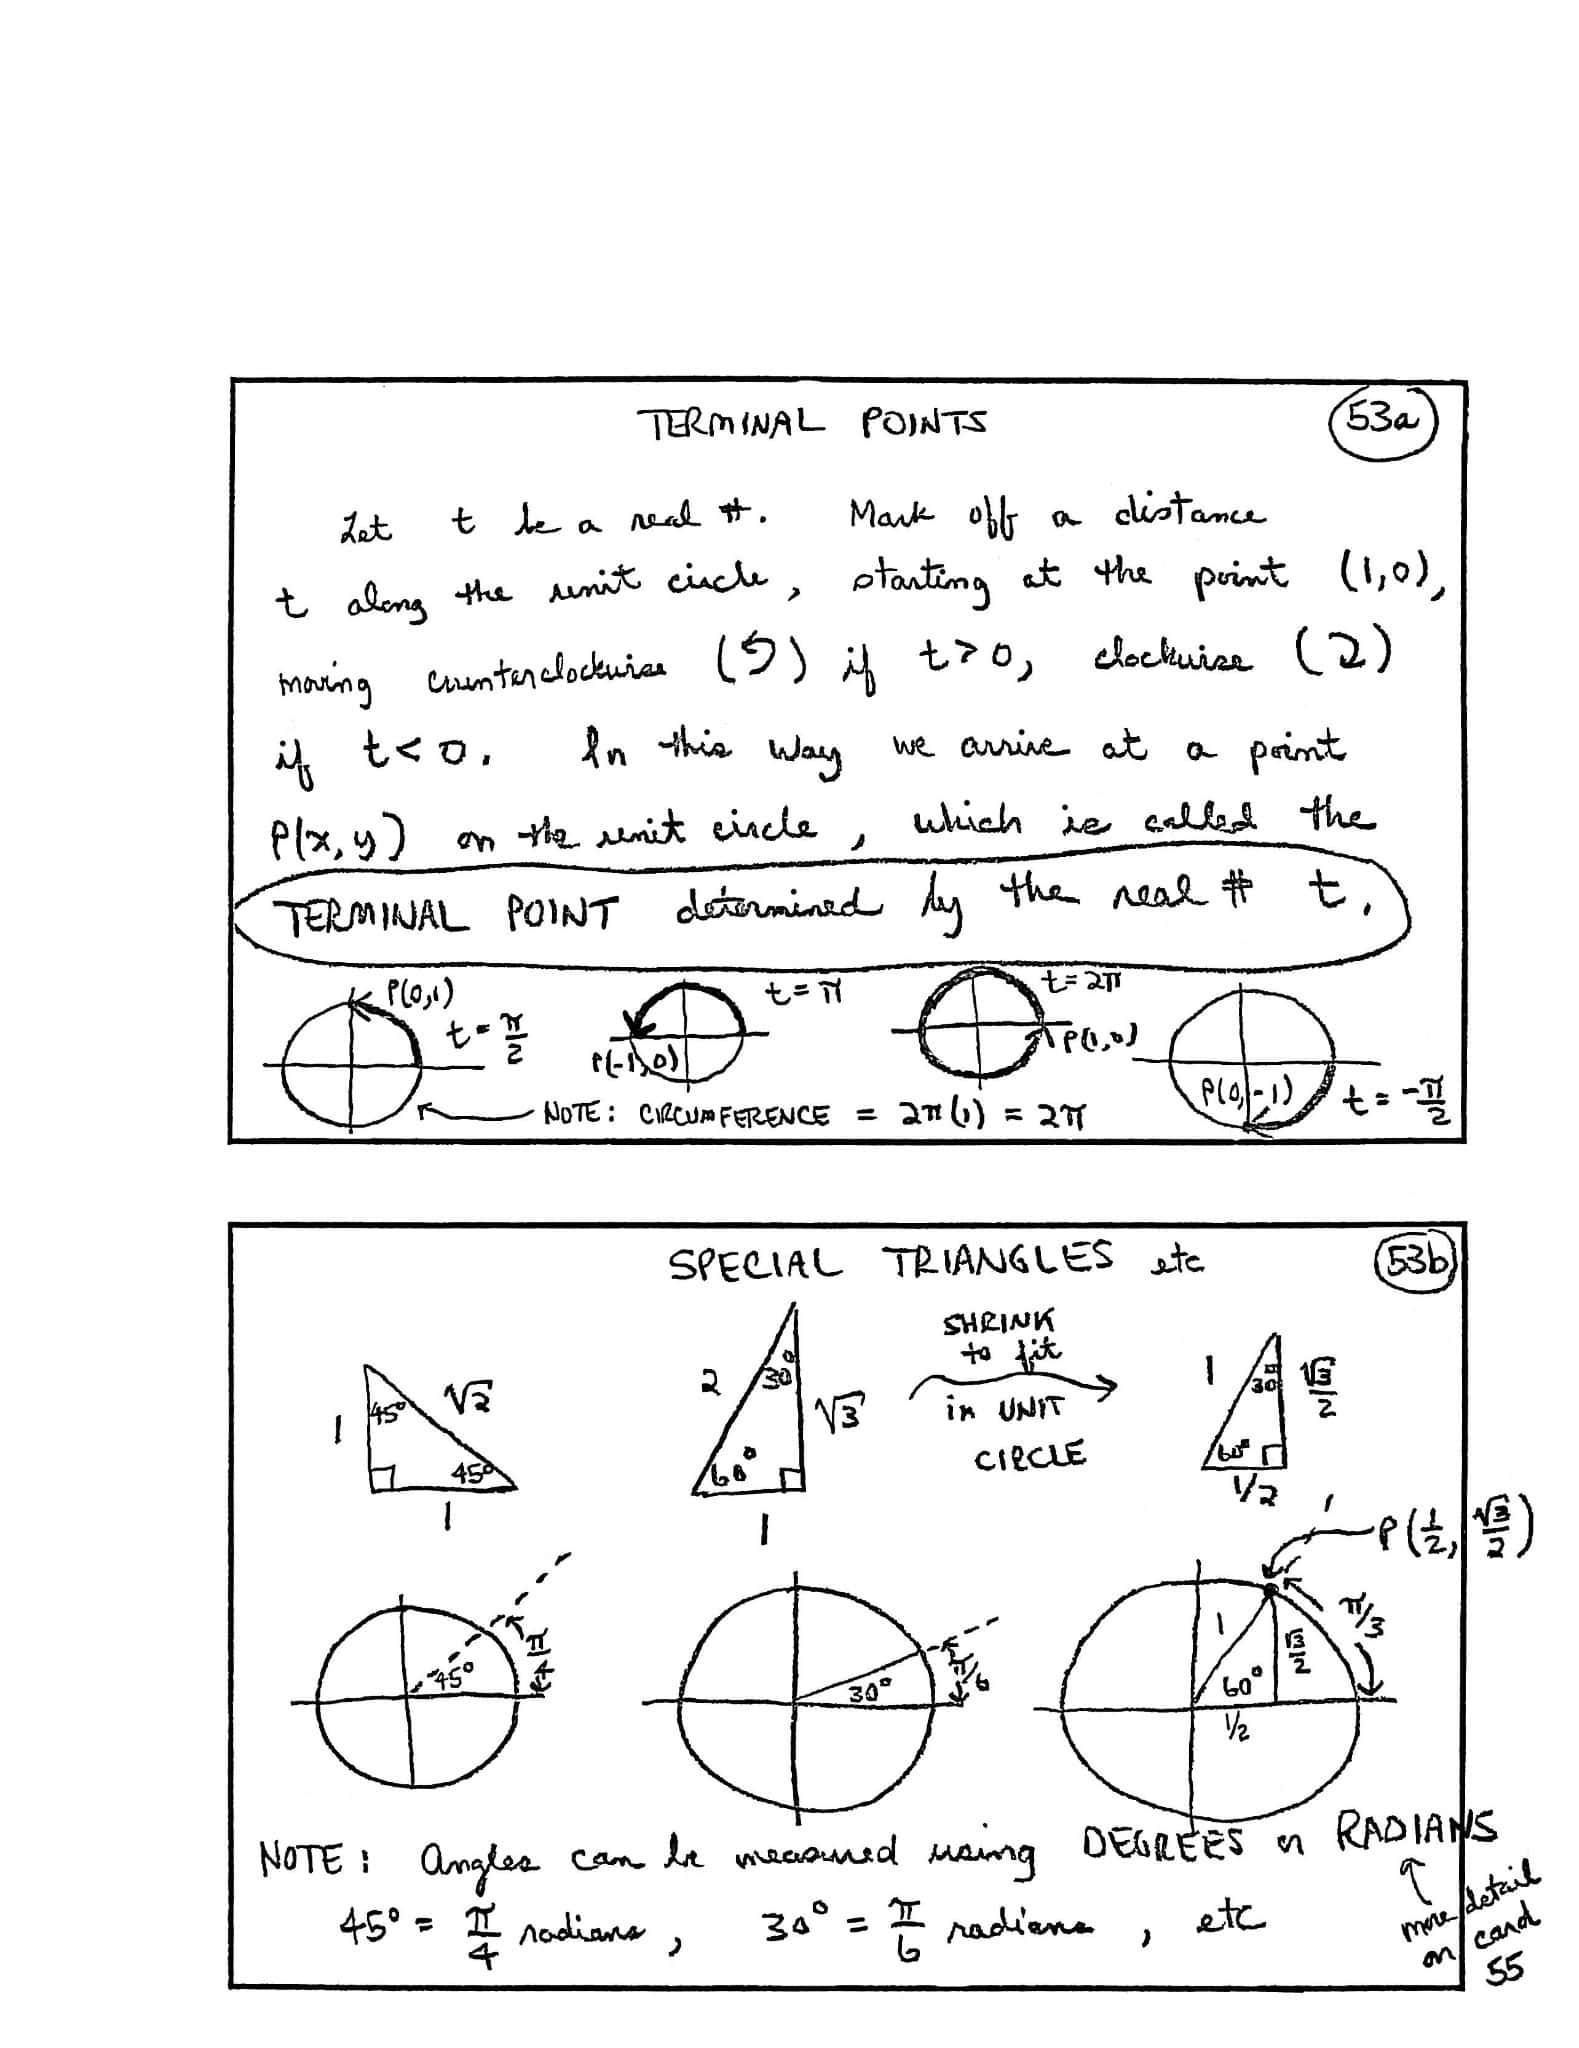 TERMINAL POINTS
53a
Let t be a real #. Mark off a distance
t along the unit circle, starting at the point (1,0),
moving counterclockwise (↺) if t>0, clockwise (↻)
if t<0. In this way we arrive at a point
P(x,y) on the unit circle, which is called the
TERMINAL POINT determined by the real # t.
P(0,1)
t = π/2
t = π
P(-1,0)
t = 2π
P(1,0)
P(0,-1)
t = -π/2
NOTE: CIRCUMFERENCE = 2π(1) = 2π
SPECIAL TRIANGLES etc
53b
1
45°
√2
45°
1
2
30°
√3
60°
1
SHRINK
to fit
in UNIT
CIRCLE
1
30°
√3/2
60°
1/2
P(1/2, √3/2)
45°
π/4
30°
π/6
1
√3/2
60°
1/2
π/3
NOTE: Angles can be measured using DEGREES or RADIANS
45° = π/4 radians, 30° = π/6 radians, etc
more detail
on card
55